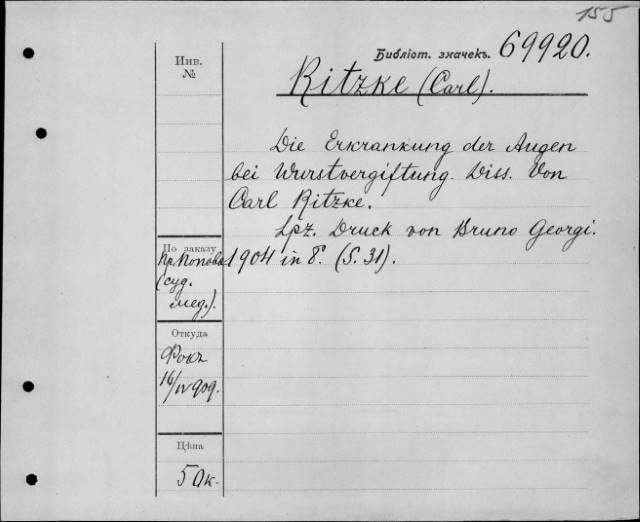 155
Инв.
№
Библіот. значекъ. 69920.
Ritzke (Carl).
Die Erkrankung der Augen
bei Wurstvergiftung. Diss. Von
Carl Ritzke.
Lpz. Druck von Bruno Georgi.
1904 in 8°. (S. 31).
По заказу
Пр. Попова
(суд.
мед.).
Откуда
Фокъ
16/IV 909.
Цѣна
50 к.